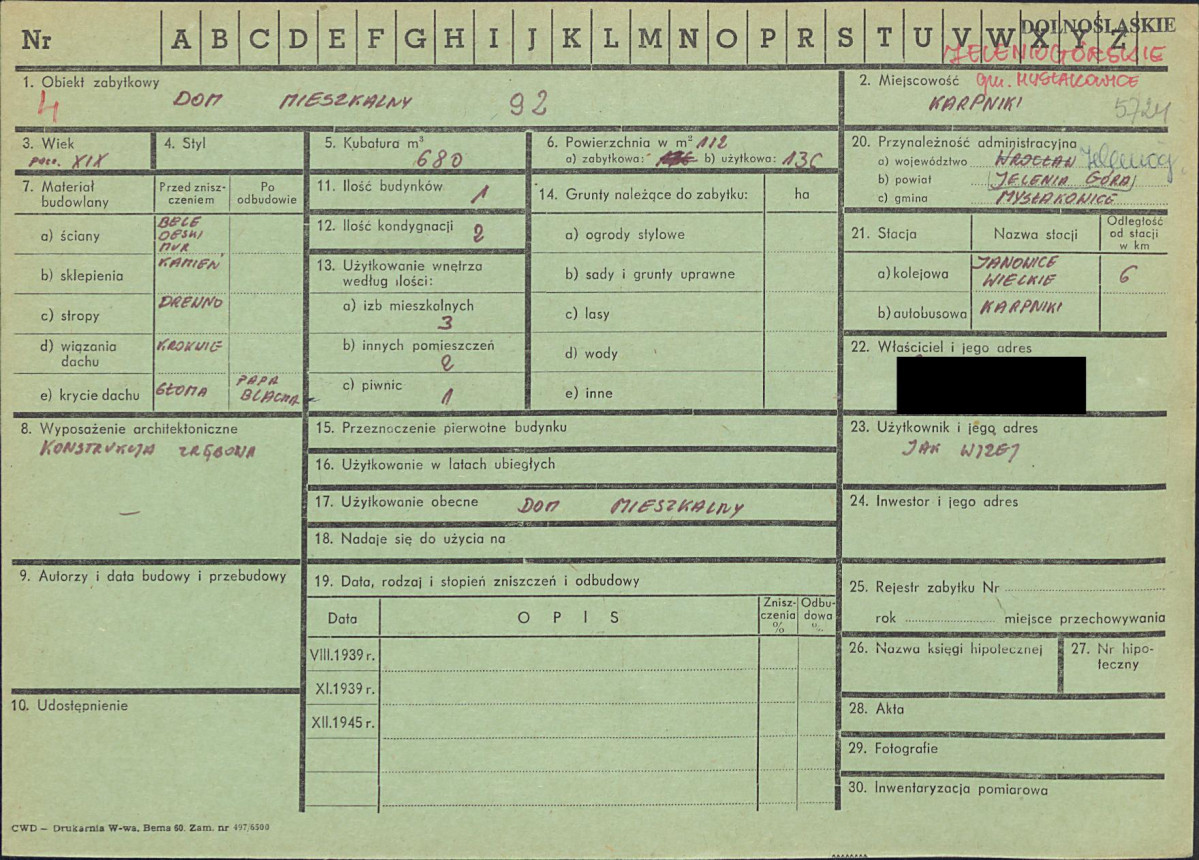 Nr A B C D E F G H I J K L M N O P R S T U V W X Y Z DOLNOŚLĄSKIE
JELENIOGÓRSKIE
1. Obiekt zabytkowy
4 DOM MIESZKALNY 92
2. Miejscowość gm. MYSŁAKOWICE
KARPNIKI 5724
3. Wiek
pocz. XIX
4. Styl
5. Kubatura m³
680
6. Powierzchnia w m² 112
a) zabytkowa: b) użytkowa: 136
7. Materiał budowlany
Przed zniszczeniem
Po odbudowie
a) ściany
BELE
DESKI
MUR
b) sklepienia KAMIEŃ
c) stropy DREWNO
d) wiązania dachu KROKWIE
e) krycie dachu SŁOMA PAPA
BLACHA
8. Wyposażenie architektoniczne
KONSTRUKCJA ZRĘBOWA
–
9. Autorzy i data budowy i przebudowy
10. Udostępnienie
11. Ilość budynków 1
12. Ilość kondygnacji 2
13. Użytkowanie wnętrza
według ilości:
a) izb mieszkalnych
3
b) innych pomieszczeń
2
c) piwnic
1
14. Grunty należące do zabytku: ha
a) ogrody stylowe
b) sady i grunty uprawne
c) lasy
d) wody
e) inne
15. Przeznaczenie pierwotne budynku
16. Użytkowanie w latach ubiegłych
17. Użytkowanie obecne DOM MIESZKALNY
18. Nadaje się do użycia na
19. Data, rodzaj i stopień zniszczeń i odbudowy
Data O P I S Zniszczenia % Odbudowa %
VIII.1939 r.
XI.1939 r.
XII.1945 r.
20. Przynależność administracyjna
a) województwo WROCŁAW
b) powiat JELENIA GÓRA
c) gmina MYSŁAKOWICE
21. Stacja Nazwa stacji Odległość
od stacji
w km
a) kolejowa JANOWICE
WIELKIE 6
b) autobusowa KARPNIKI
22. Właściciel i jego adres
23. Użytkownik i jego adres
JAK WYŻEJ
24. Inwestor i jego adres
25. Rejestr zabytku Nr
rok miejsce przechowywania
26. Nazwa księgi hipotecznej
27. Nr hipoteczny
28. Akta
29. Fotografie
30. Inwentaryzacja pomiarowa
CWD – Drukarnia W-wa, Bema 60. Zam. nr 497/6500